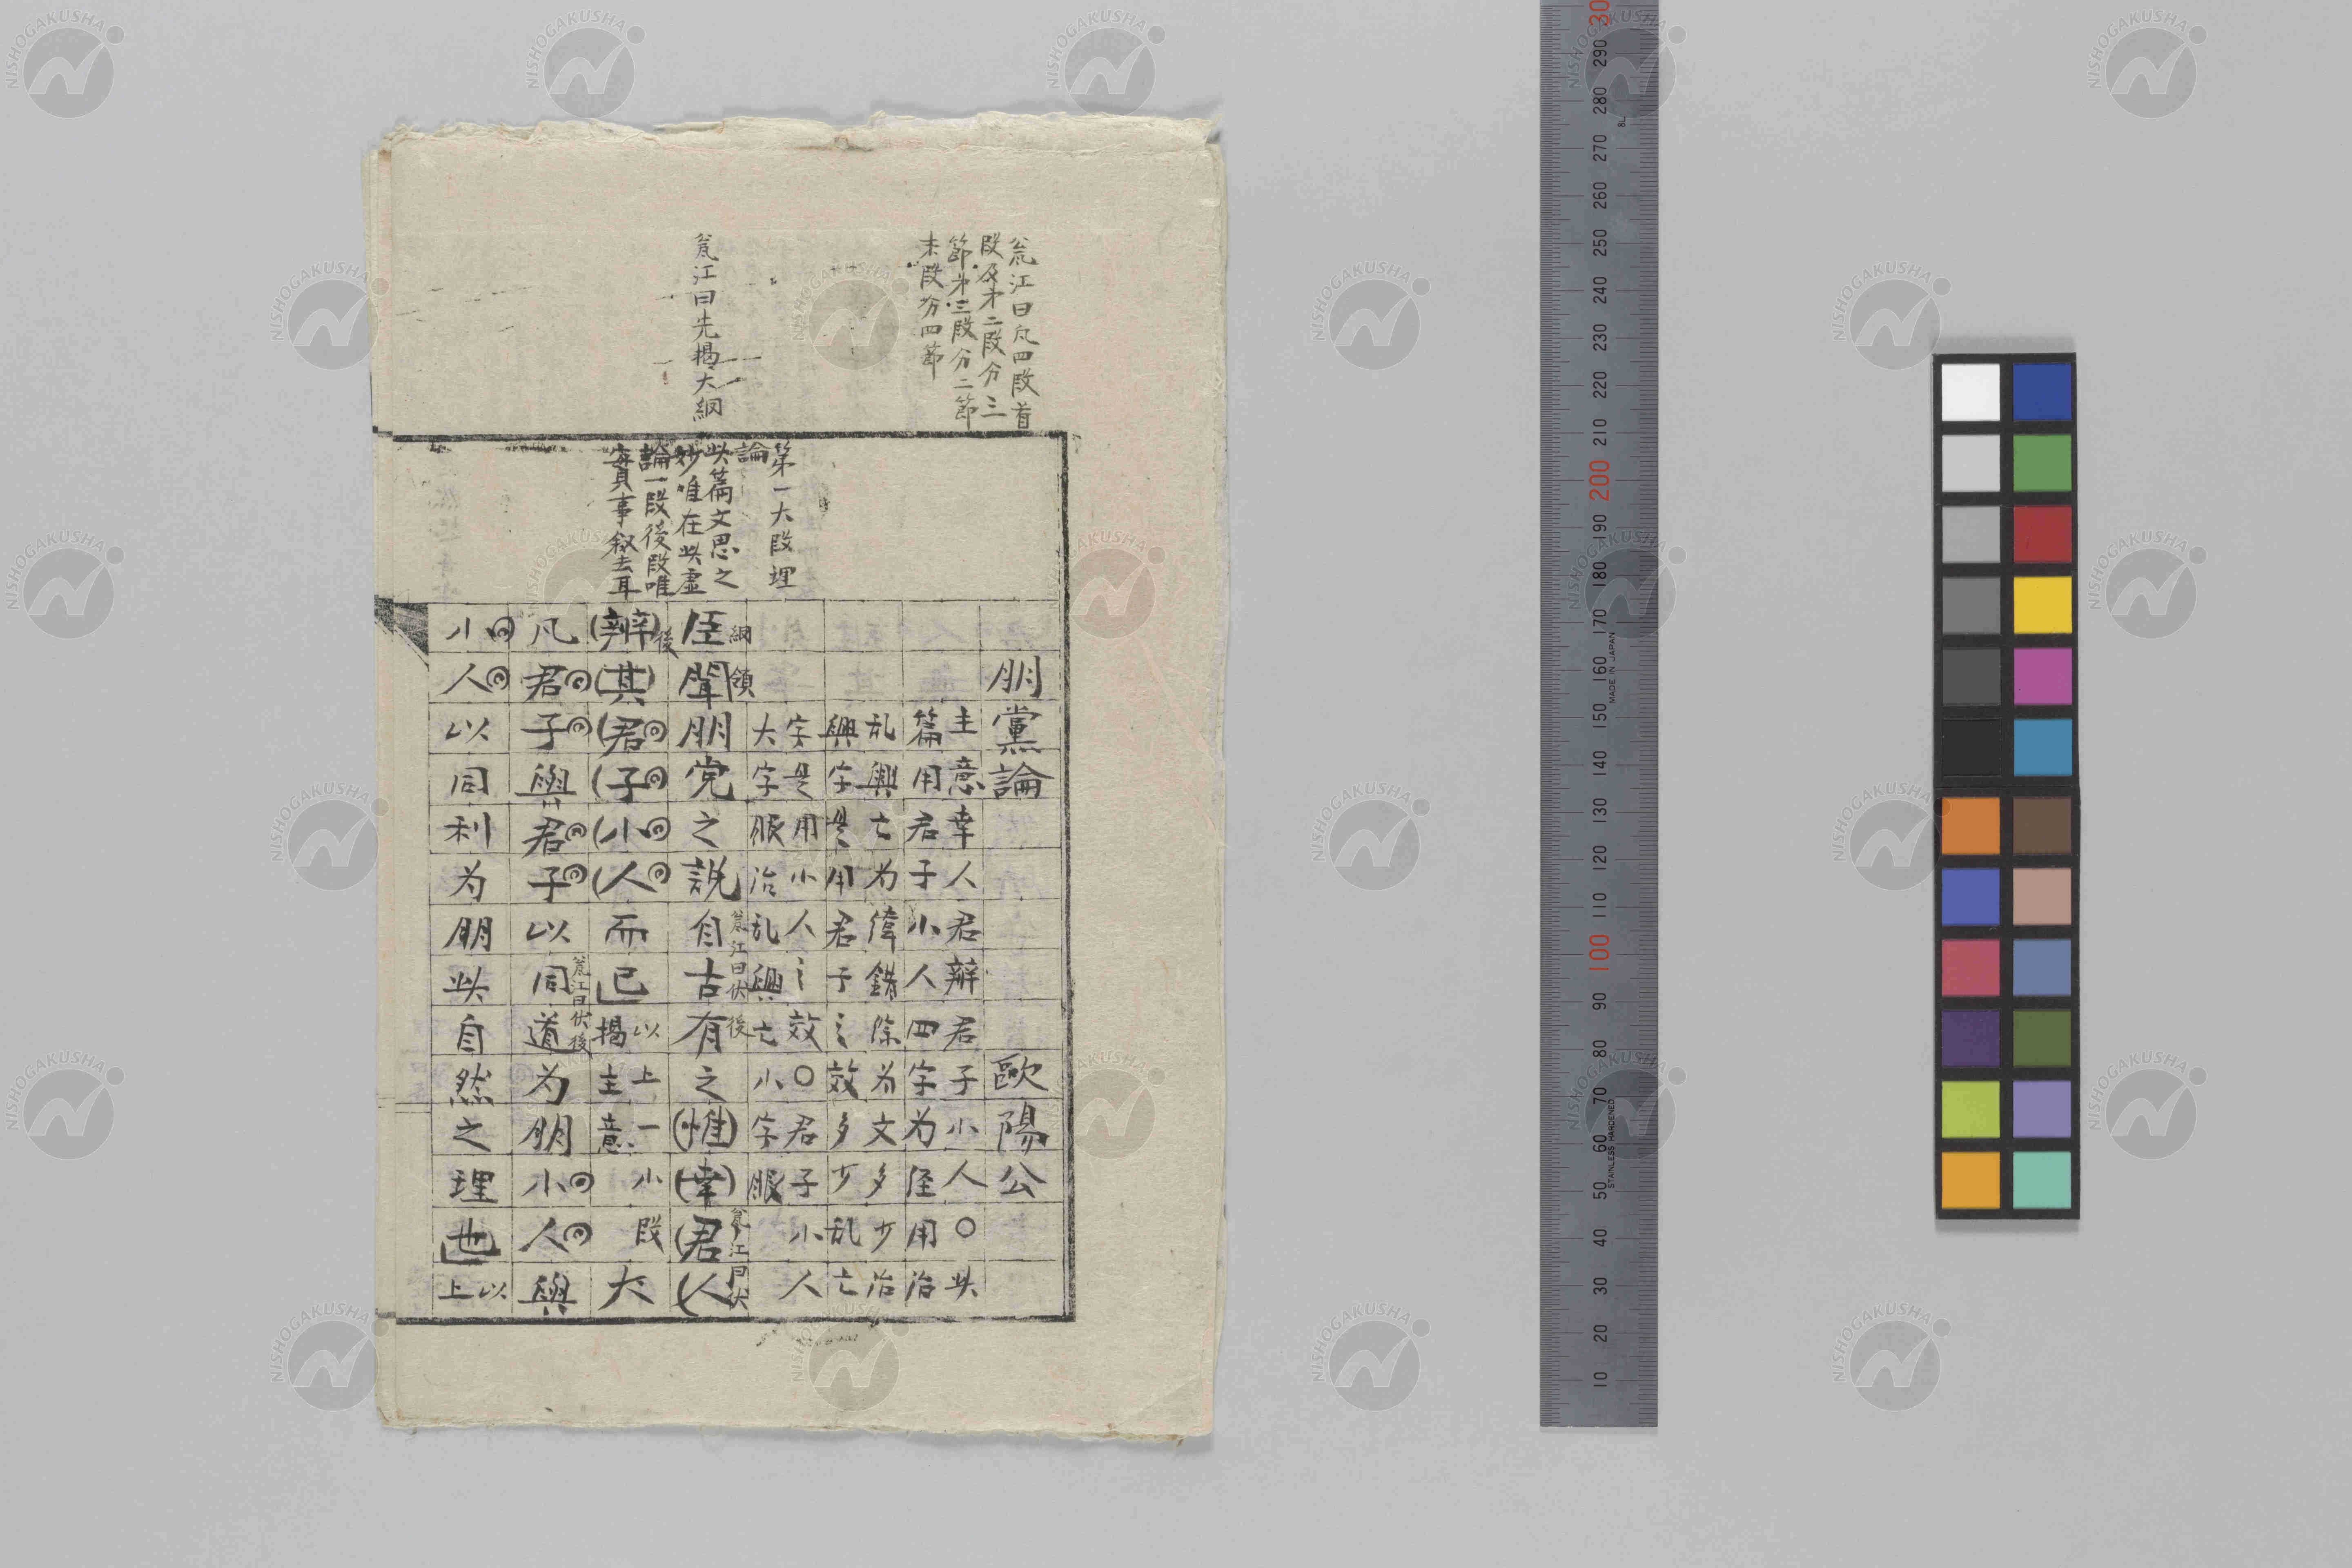 瓮江曰凡四段首
段及才二段分三
節才三段分二節
末段分四節
瓮江曰先揭大綱
第一大段理
論
此篇文思之
妙唯在此虚
論一段後段唯
實事叙去耳
朋黨論 歐陽公
主意幸人君辨君子小人○此
篇用君子小人四字为侄用治
乱興亡为緯錯除为文多少治
興字是用君子之效多少乱亡
字是用小人之效○君子小人
大字眼治乱興亡小字眼
綱領
臣聞朋党之説自古有之惟幸君人
瓮江曰伏後
瓮江曰伏
後
辨其君子小人而已
以上一小段
揭主意
大
凡君子與君子以同道为朋小人與
瓮江曰伏後
小人以同利为朋此自然之理也
以
上
NISHOGAKUSHA
10 20 30 40 50 60 70 80 90 100 110 120 130 140 150 160 170 180 190 200 210 220 230 240 250 260 270 280 290 30
STAINLESS HARDENED
MADE IN JAPAN